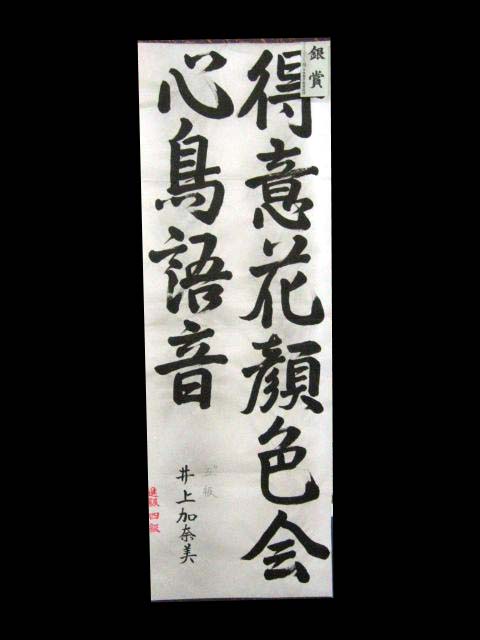 銀賞
得意花顔色会
心鳥語音
五級
井上加奈美
進級四級